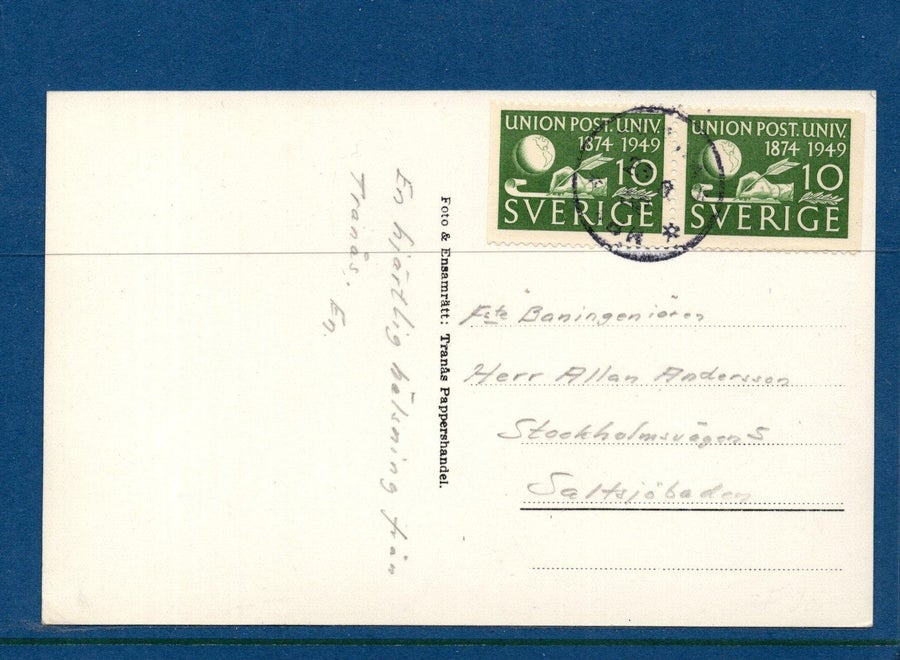 UNION POST. UNIV.
1874 1949
10
SVERIGE
UNION POST. UNIV.
1874 1949
10
SVERIGE
En hjärtlig hälsning från
Tranås. En.
Foto & Ensamrätt: Tranås Pappershandel.
Baningeniören
Herr Allan Andersson
Stockholmsvägen 5
Saltsjöbaden